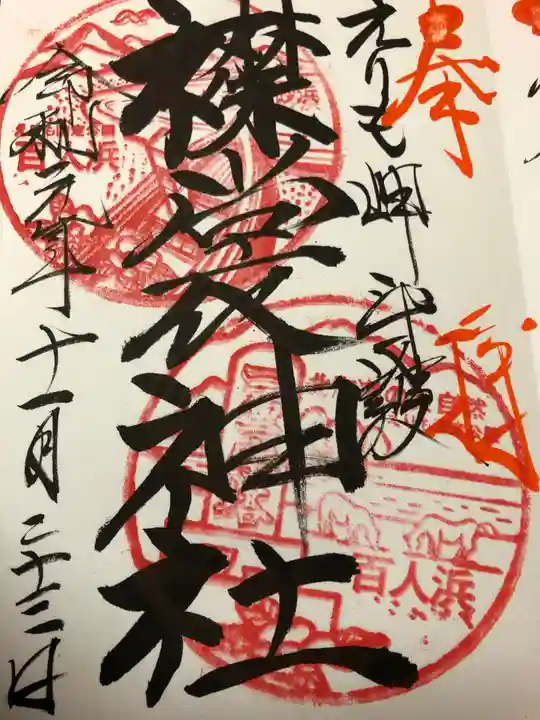 奉拝
えりも岬
襟裳神社
令和元年十一月二十三日
百人浜
自然
百人浜